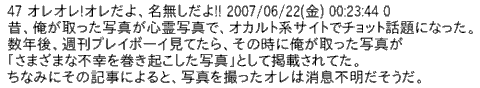 47 オレオレ!オレだよ、名無しだよ!! 2007/06/22(金) 00:23:44 0
昔、俺が取った写真が心霊写真で、オカルト系サイトでチョット話題になった。
数年後、週刊プレイボーイ見てたら、その時に俺が取った写真が
「さまざまな不幸を巻き起こした写真」として掲載されてた。
ちなみにその記事によると、写真を撮ったオレは消息不明だそうだ。